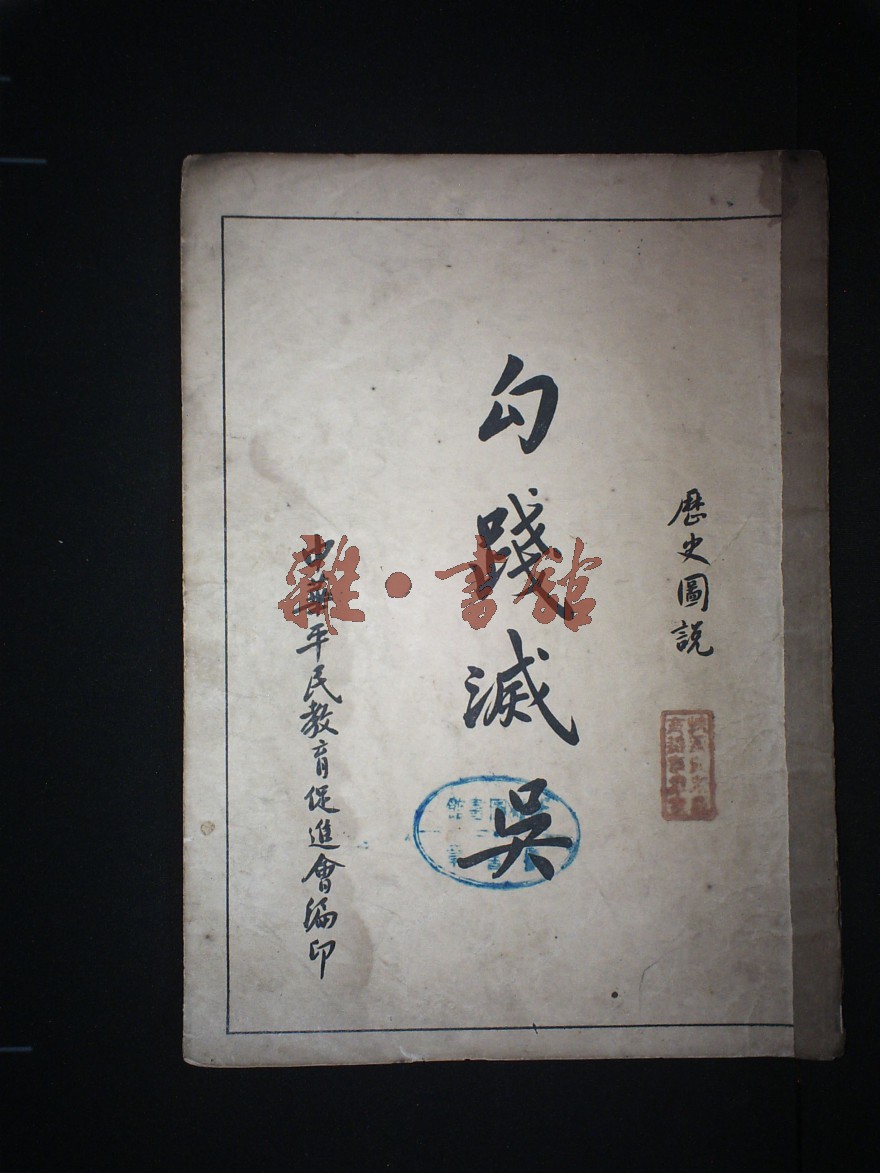 歷史圖說
勾踐滅吳
中華平民教育促進會編印
雜·書館